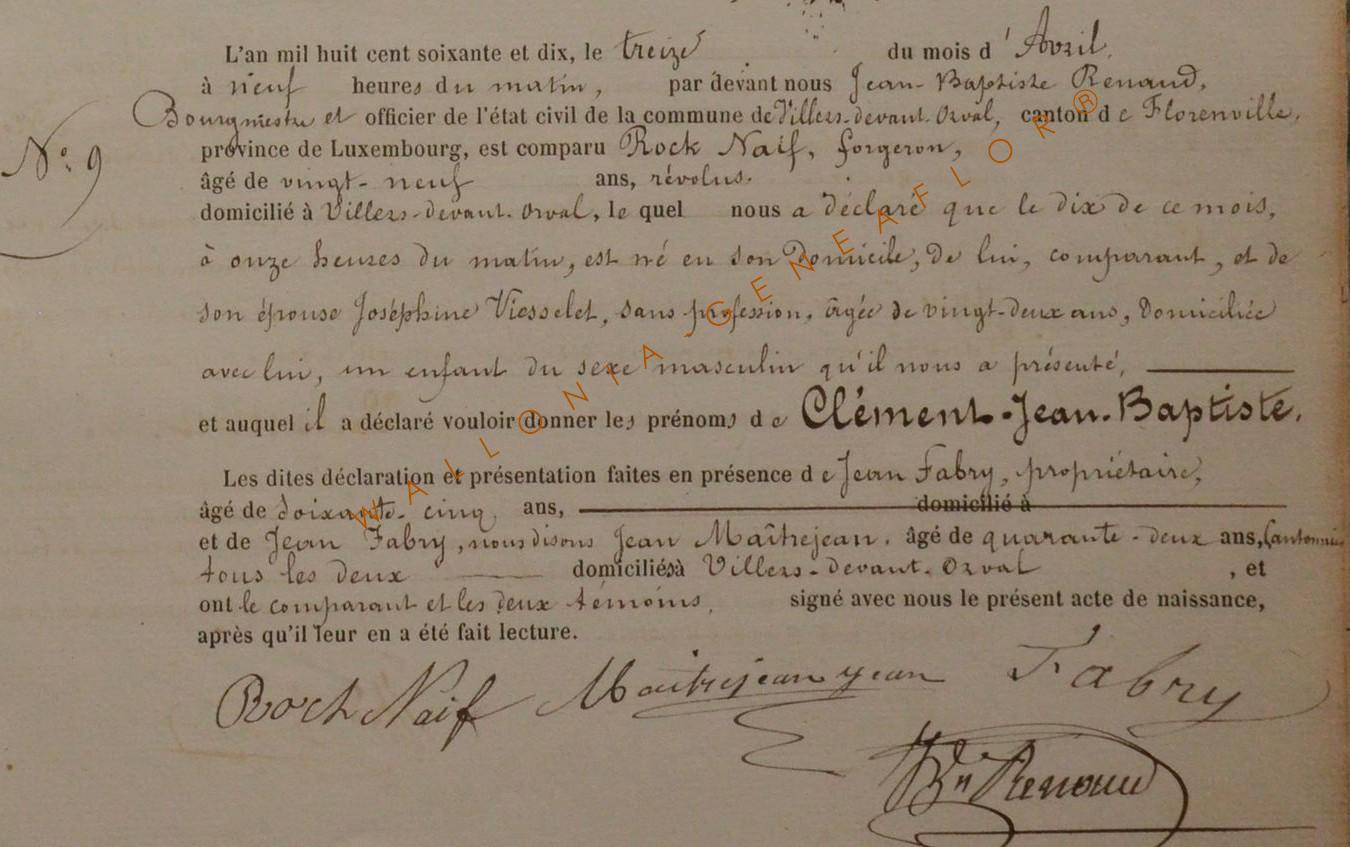 L'an mil huit cent soixante et dix, le treize du mois d'Avril,
à neuf heures du matin, par devant nous Jean-Baptiste Renaud,
Bourgmestre et officier de l'état civil de la commune de Villers-devant-Orval, canton de Florenville,
N° 9
province de Luxembourg, est comparu Rock Naif, forgeron,
âgé de vingt-neuf ans, révolus.
domicilié à Villers-devant-Orval, le quel nous a déclaré que le dix de ce mois,
à onze heures du matin, est né en son domicile, de lui, comparant, et de
son épouse Joséphine Viesselet, sans profession, âgée de vingt-deux ans, domiciliée
avec lui, un enfant du sexe masculin qu'il nous a présenté,
et auquel il a déclaré vouloir donner les prénoms de Clément-Jean-Baptiste.
Les dites déclaration et présentation faites en présence de Jean Fabry, propriétaire,
âgé de soixante-cinq ans, domicilié à
et de Jean Fabry, nous disons Jean Maîtrejean, âgé de quarante-deux ans, Cantonnier
tous les deux domiciliés à Villers-devant-Orval, et
ont le comparant et les deux témoins, signé avec nous le présent acte de naissance,
après qu'il leur en a été fait lecture.
Roch Naif Maitrejean jean Fabry
JBn Renaud
WALLONIA-GENEAFLOR®